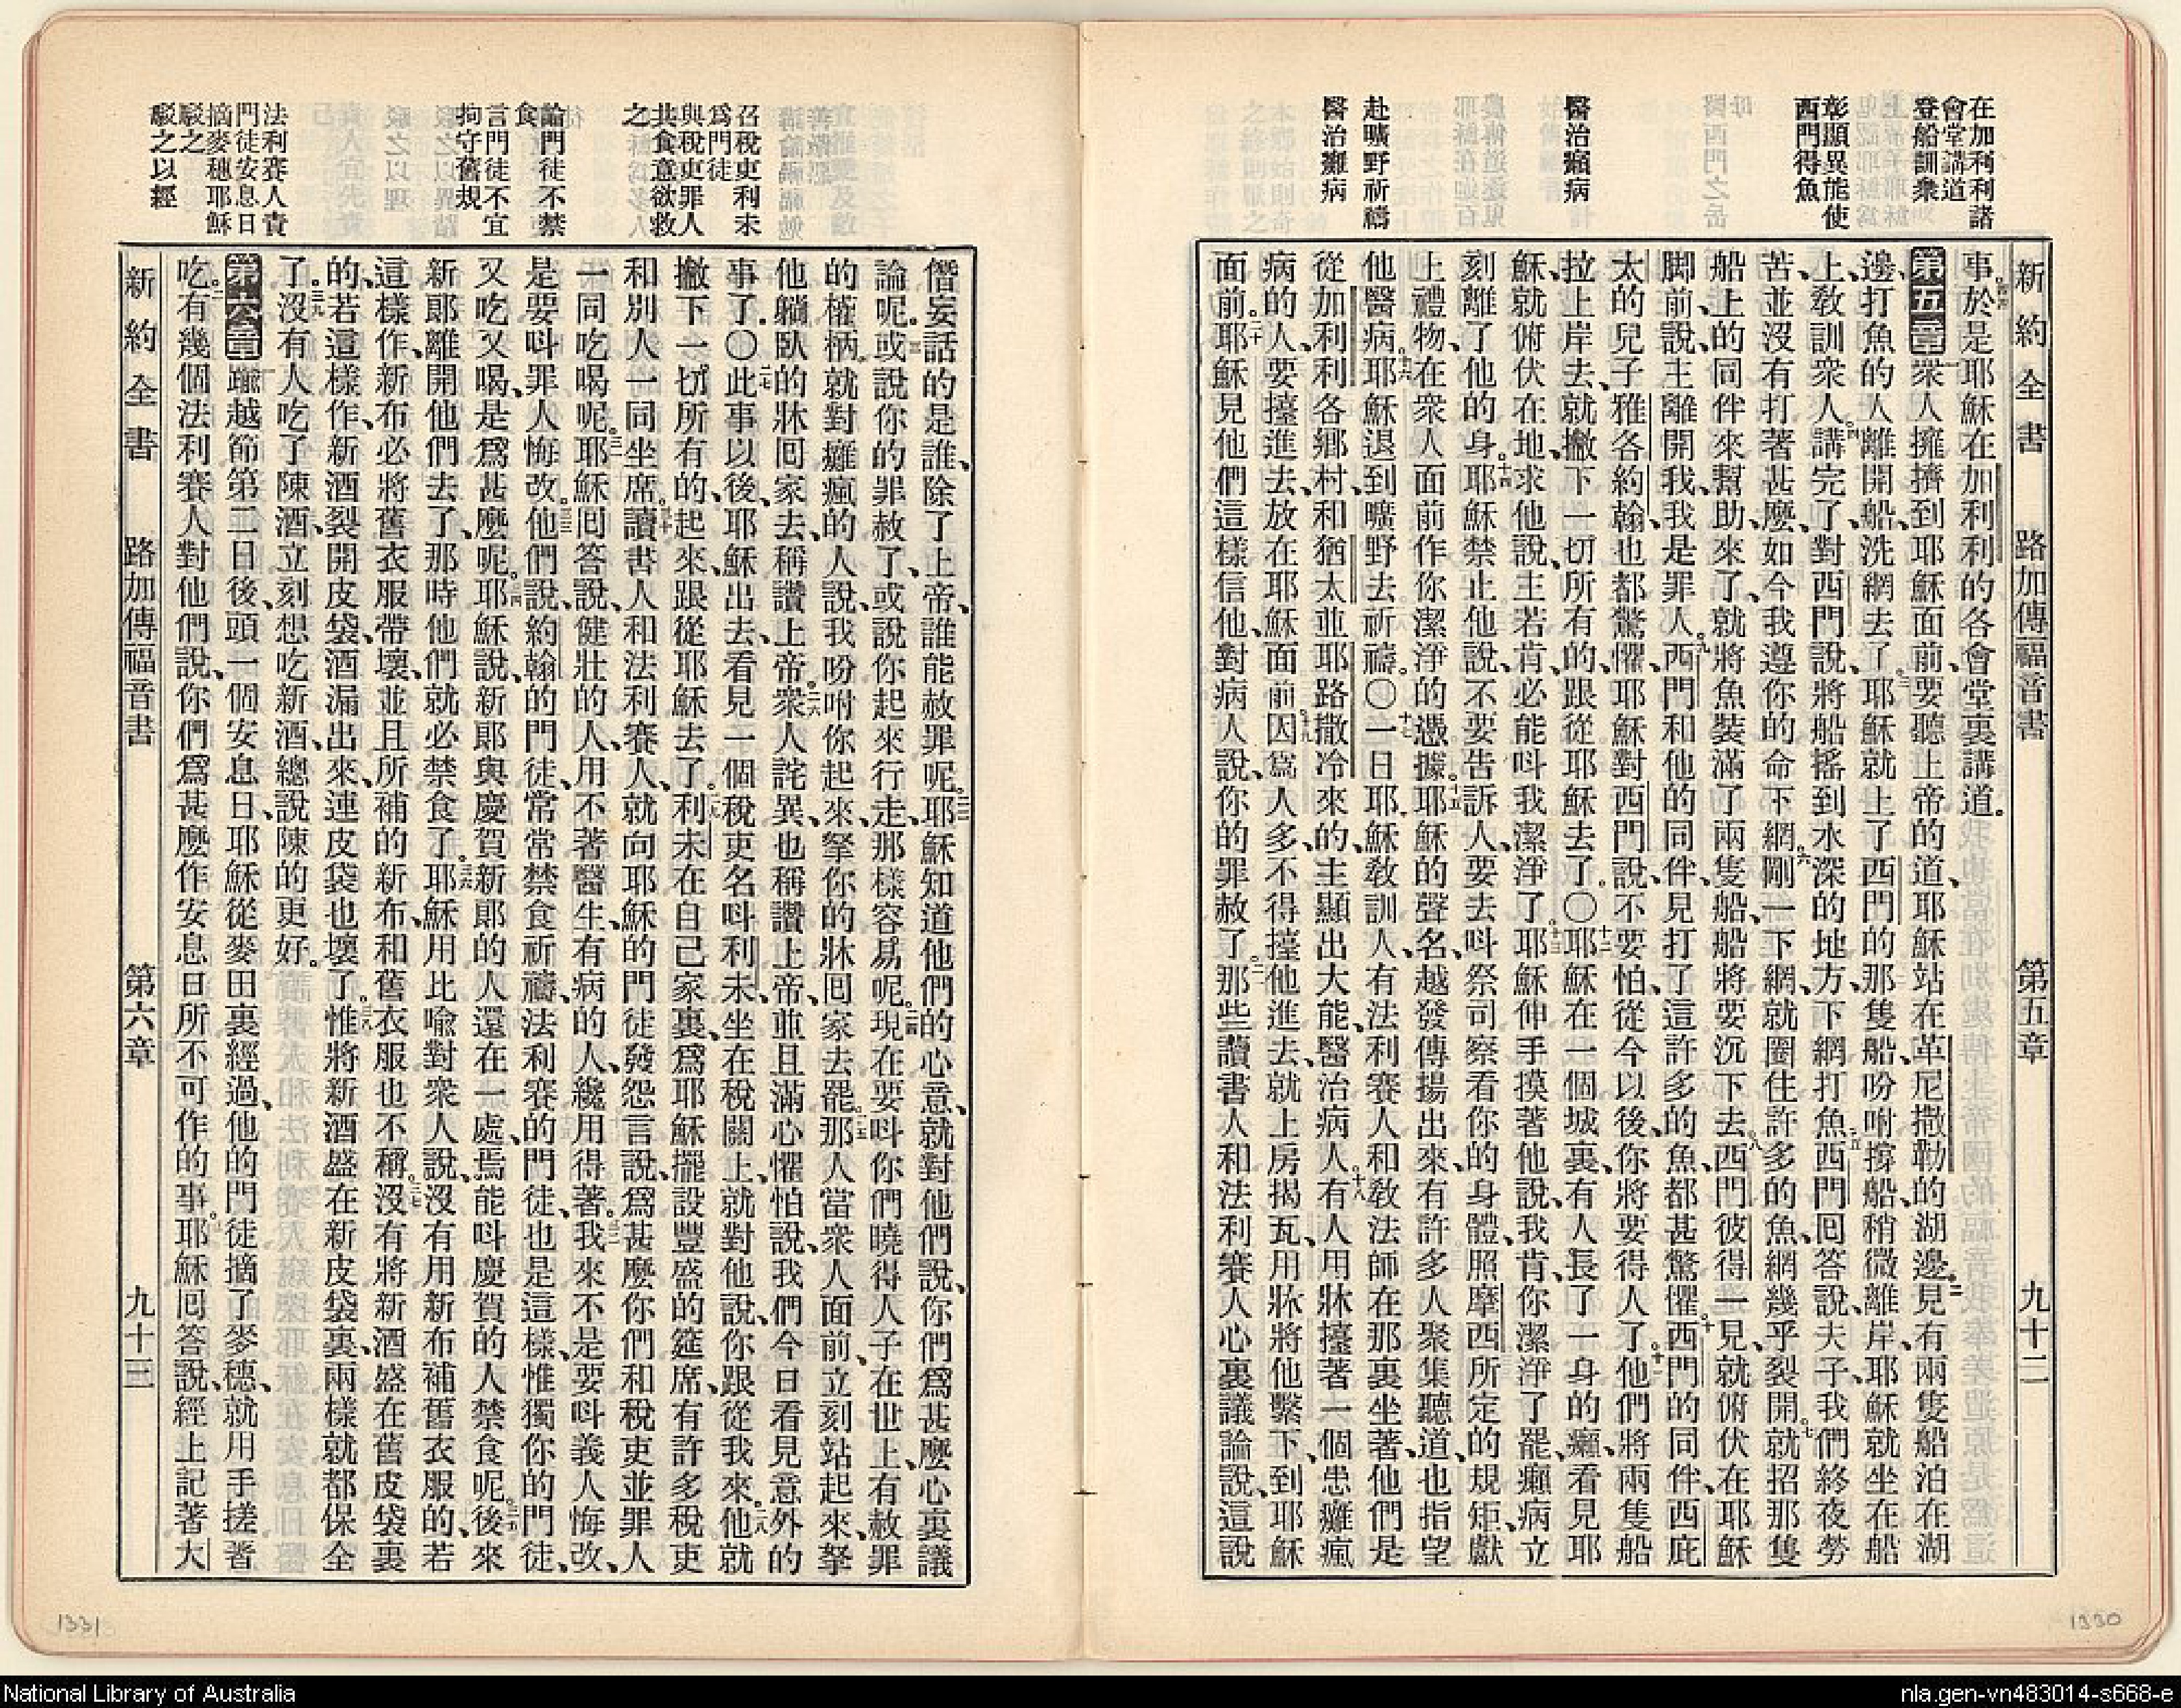 新約全書 路加傳福音書 第五章 九十二
在加利利諸
會堂講道
登船訓衆
彰顯異能使
西門得魚
醫治癩病
赴曠野祈禱
醫治癱病
事於是耶穌在加利利的各會堂裏講道。
第五章 衆人擁擠到耶穌面前、要聽上帝的道、耶穌站在革尼撒勒的湖邊、見有兩隻船泊在湖
邊、打魚的人離開船、洗網去了。耶穌就上了西門的那隻船、吩咐撐船、稍微離岸、耶穌就坐在船
上、敎訓衆人。講完了、對西門說、將船搖到水深的地方、下網打魚。西門囘答說、夫子、我們終夜勞
苦、並沒有打著甚麼、如今我遵你的命下網。剛一下網、就圈住許多的魚、網幾乎裂開。就招那隻
船上的同伴來幫助、來了、就將魚裝滿了兩隻船、船將要沉下去。西門彼得一見、就俯伏在耶穌
脚前、說、主離開我、我是罪人。西門和他的同伴、見打了這許多的魚、都甚驚懼。西門的同伴、西庇
太的兒子雅各約翰、也都驚懼、耶穌對西門說、不要怕、從今以後、你將要得人了。他們將兩隻船
拉上岸去、就撇下一切所有的、跟從耶穌去了。〇耶穌在一個城裏、有人長了一身的癩、看見耶
穌、就俯伏在地、求他說、主若肯、必能呌我潔淨了。耶穌伸手摸著他說、我肯、你潔淨了罷、癩病立
刻離了他的身。耶穌禁止他說、不要告訴人、要去呌祭司察看你的身體、照摩西所定的規矩、獻
上禮物、在衆人面前作你潔淨的憑據。耶穌的聲名、越發傳揚出來、有許多人聚集聽道、也指望
他醫病。耶穌退到曠野去祈禱。〇一日耶穌敎訓人、有法利賽人和敎法師在那裏坐著、他們是
從加利利各鄉村、和猶太並耶路撒冷來的、主顯出大能、醫治病人。有人用牀擡著一個患癱瘋
病的人、要擡進去、放在耶穌面前。因爲人多、不得擡他進去、就上房揭瓦、用牀將他繫下、到耶穌
面前。耶穌見他們這樣信他、對病人說、你的罪赦了。那些讀書人和法利賽人心裏議論說、這說
1330
新約全書 路加傳福音書 第六章 九十三
召稅吏利未
爲門徒
與稅吏罪人
共食意欲救
之
論門徒不禁
食
言門徒不宜
拘守舊規
法利賽人責
門徒安息日
摘麥穗耶穌
駁之
駁之以經
僭妄話的是誰、除了上帝、誰能赦罪呢。耶穌知道他們的心意、就對他們說、你們爲甚麼心裏議
論呢。或說你的罪赦了、或說你起來行走、那樣容易呢。現在要呌你們曉得人子在世上、有赦罪
的權柄。就對癱瘋的人說、我吩咐你起來、拏你的牀囘家去罷。那人當衆人面前、立刻站起來、拏
他躺臥的牀囘家去、稱讚上帝。衆人詫異、也稱讚上帝、並且滿心懼怕、說、我們今日看見意外的
事了。〇此事以後、耶穌出去、看見一個稅吏名呌利未、坐在稅關上、就對他說、你跟從我來。他就
撇下一切所有的、起來、跟從耶穌去了。利未在自己家裏、爲耶穌擺設豐盛的筵席、有許多稅吏
和別人一同坐席。讀書人和法利賽人、就向耶穌的門徒發怨言說、爲甚麼你們和稅吏並罪人
一同吃喝呢。耶穌囘答說、健壯的人、用不著醫生、有病的人、纔用得著。我來不是要呌義人悔改、
是要呌罪人悔改。他們說、約翰的門徒、常常禁食祈禱、法利賽的門徒、也是這樣、惟獨你的門徒、
又吃又喝、是爲甚麼呢。耶穌說、新郞與慶賀新郞的人還在一處、焉能呌慶賀的人禁食呢。後來
新郞離開他們去了、那時他們就必禁食了。耶穌用比喩對衆人說、沒有用新布補舊衣服的、若
這樣作、新布必將舊衣服帶壞、並且所補的新布、和舊衣服也不稱。沒有將新酒盛在舊皮袋裏
的、若這樣作、新酒裂開皮袋、酒漏出來、連皮袋也壞了。惟將新酒盛在新皮袋裏、兩樣就都保全
了。沒有人吃了陳酒、立刻想吃新酒、總說陳的更好。
第六章 踰越節第二日後、頭一個安息日、耶穌從麥田裏經過、他的門徒摘了麥穗、就用手搓著
吃。有幾個法利賽人對他們說、你們爲甚麼作安息日所不可作的事。耶穌囘答說、經上記著大
1331
National Library of Australia
nla.gen-vn483014-s668-e